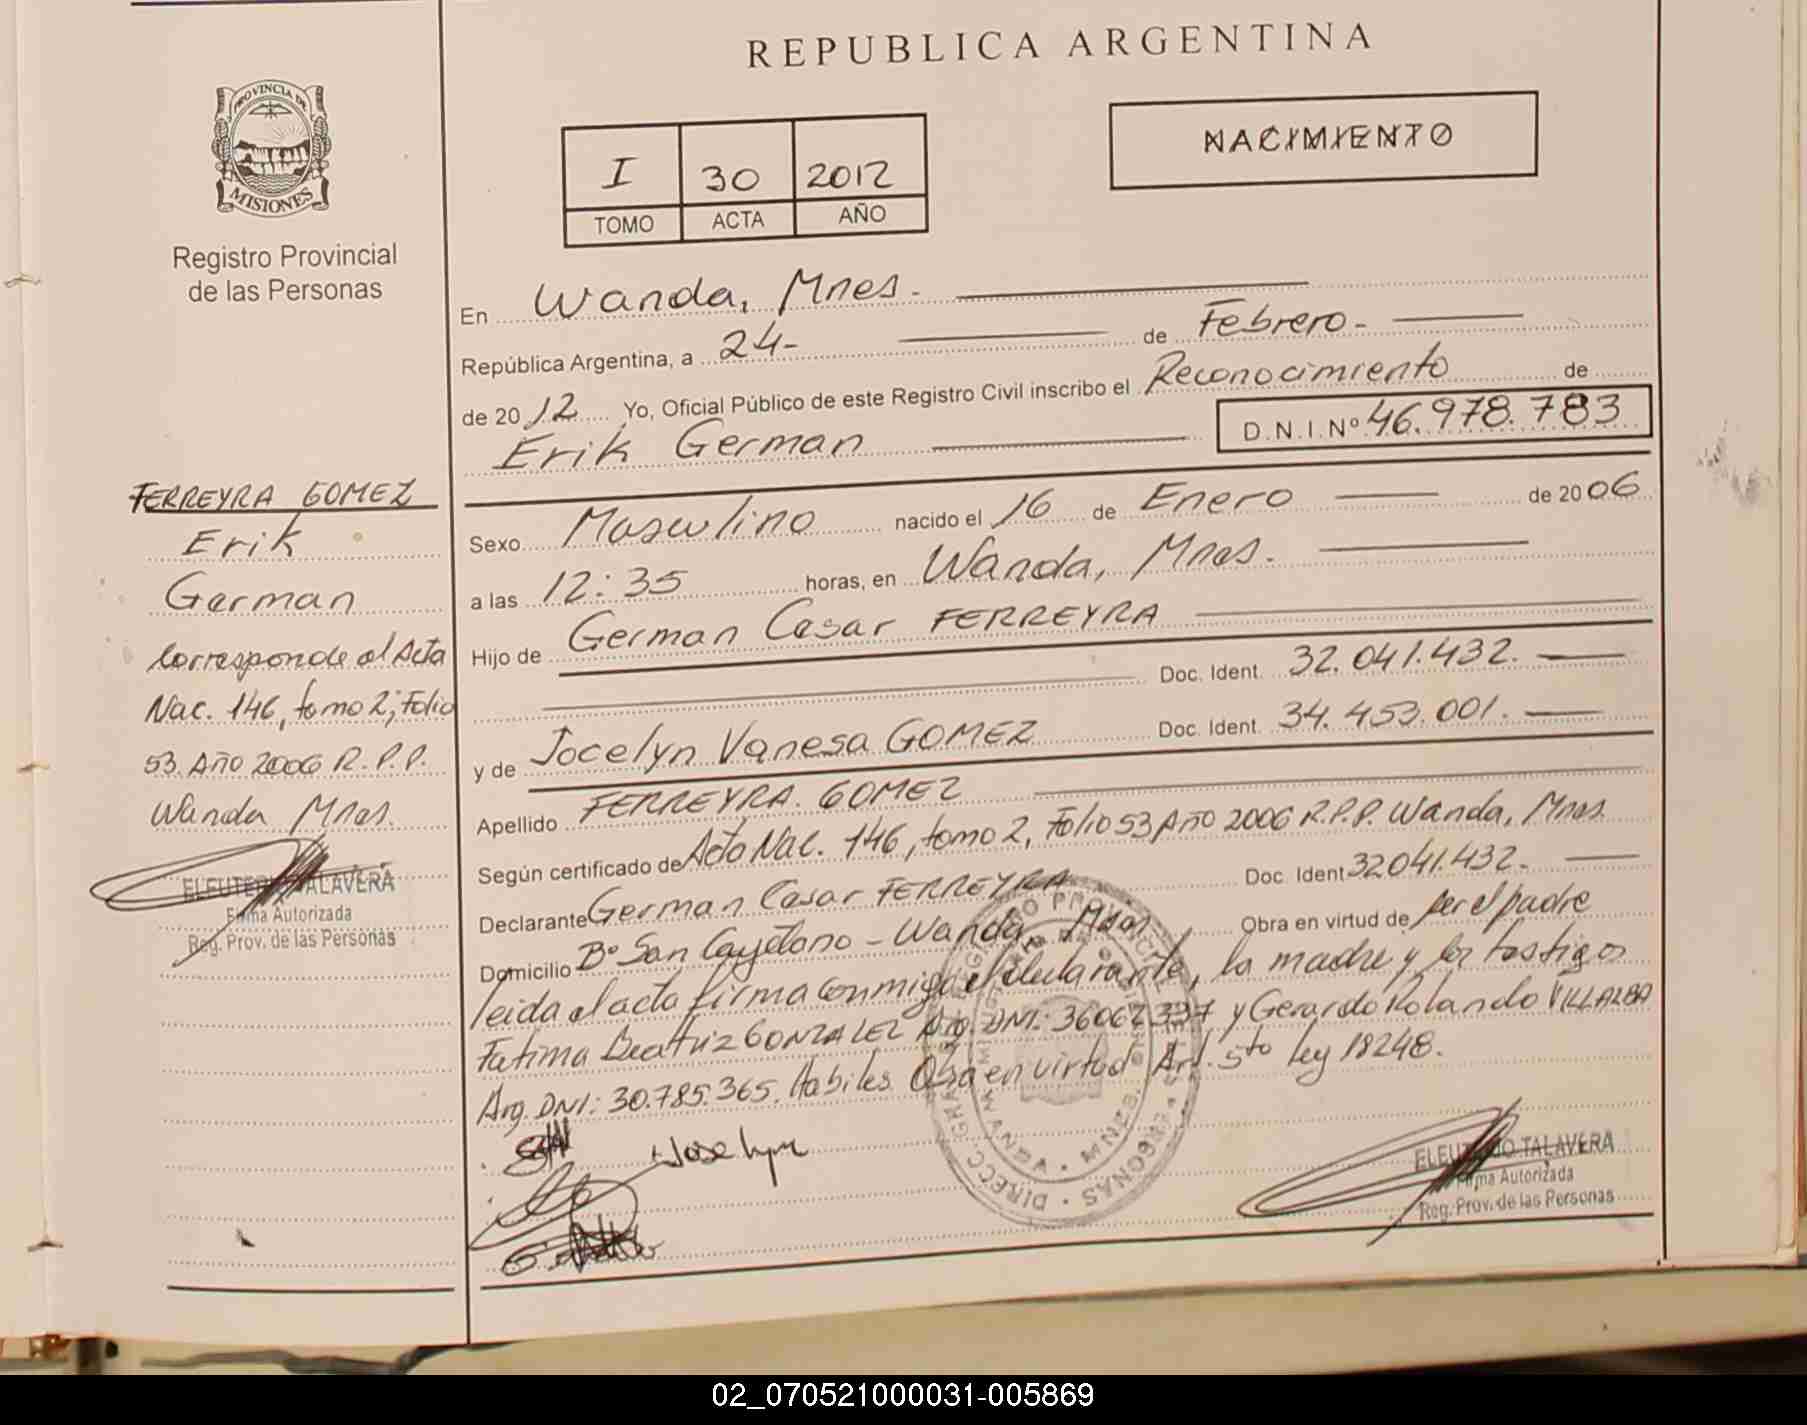 REPUBLICA ARGENTINA
PROVINCIA DE
MISIONES
Registro Provincial
de las Personas
I 30 2012
TOMO ACTA AÑO
NACIMIENTO
En Wanda, Mnes.
República Argentina, a 24- de Febrero-
de 2012 Yo, Oficial Público de este Registro Civil inscribo el Reconocimiento de
Erik German D.N.I.Nº 46.978.783
Sexo Masculino nacido el 16 de Enero de 2006
a las 12:35 horas, en Wanda, Mnes.
Hijo de German Cesar FERREYRA
Doc. Ident. 32.041.432.
y de Jocelyn Vanesa GOMEZ Doc. Ident. 34.453.001.
Apellido FERREYRA GOMEZ
Según certificado de Acta Nac. 146, tomo 2, Folio 53 Año 2006 R.P.P. Wanda, Mnes.
Declarante German Cesar FERREYRA Doc. Ident 32041.432.
Domicilio Bº San Cayetano - Wanda Mnes Obra en virtud de ser el padre
leida el acta firma conmigo el declarante, la madre y los testigos
Fatima Beatriz GONZALEZ Arg. DNI: 36062337 y Gerardo Rolando VILLALBA
Arg. DNI: 30.785.365. Habiles. Obra en virtud Art. 5to Ley 18248.
Joselyn
ELEUTERIO TALAVERA
Firma Autorizada
Reg. Prov. de las Personas
FERREYRA GOMEZ
Erik
German
Corresponde al Acta
Nac. 146, tomo 2, Folio
53 Año 2006 R.P.P.
Wanda Mnes.
ELEUTERIO TALAVERA
Firma Autorizada
Reg. Prov. de las Personas
02_070521000031-005869